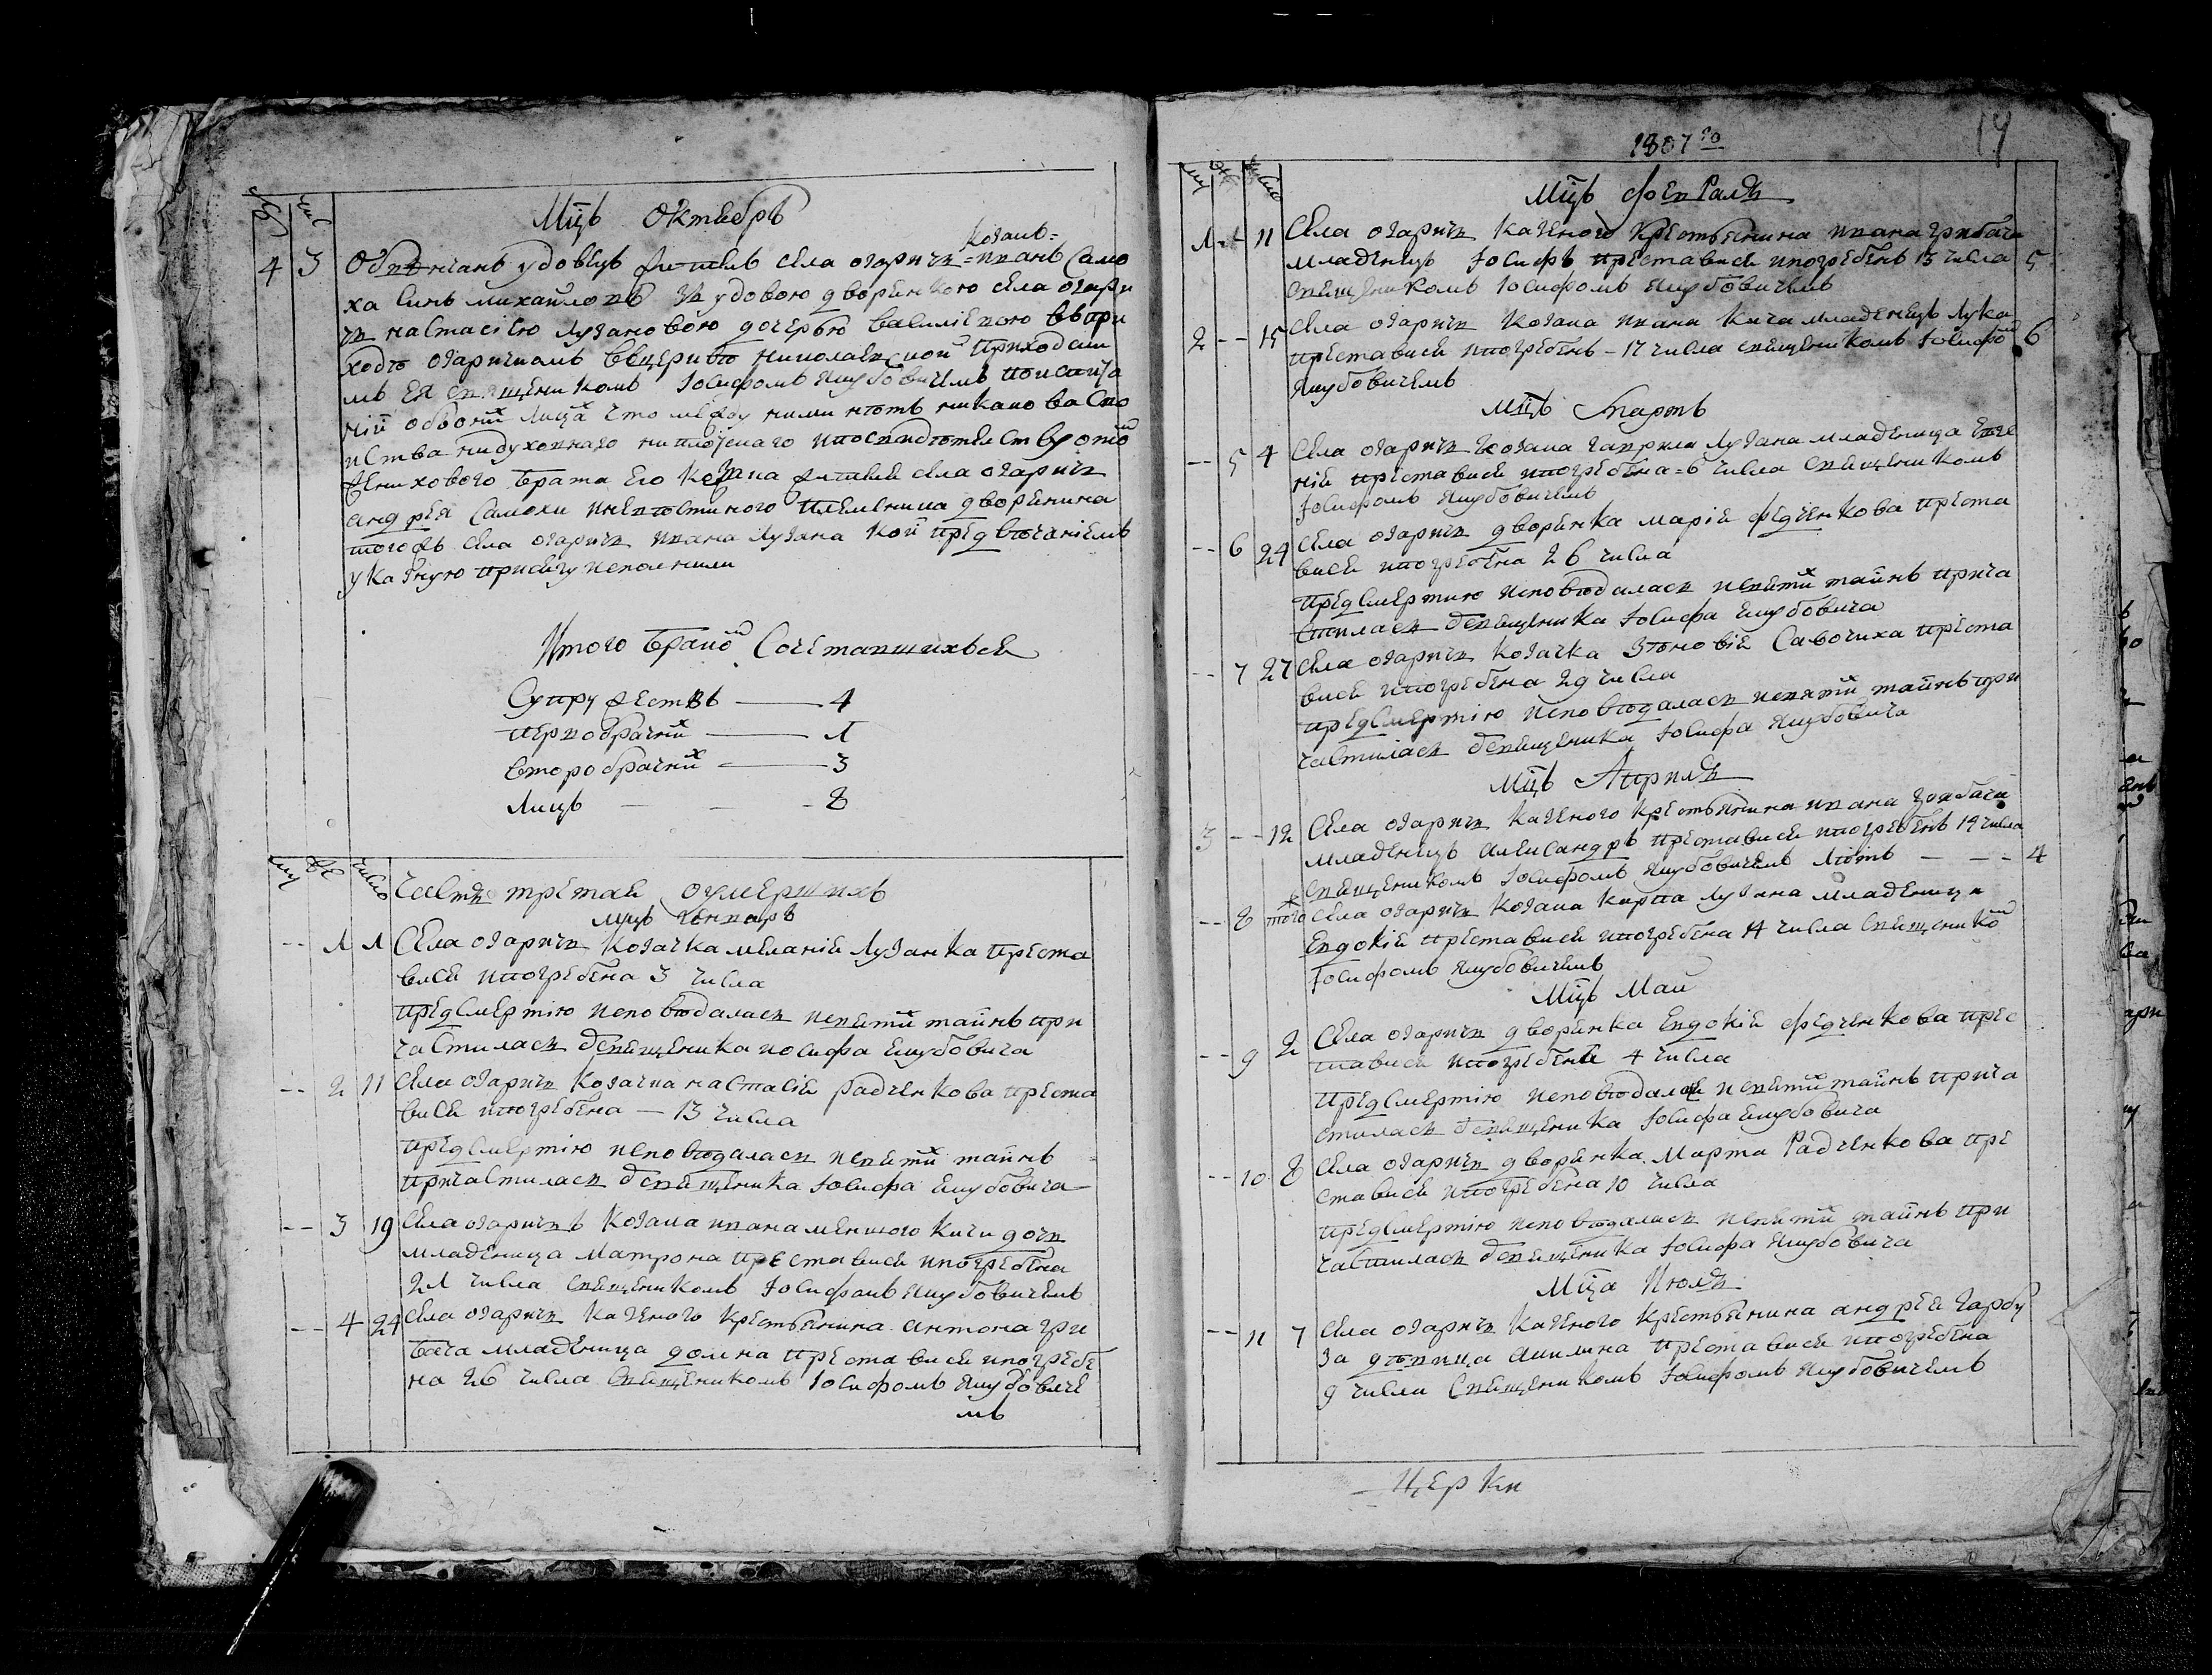 Мцъ Октябръ
козакъ
4 3 Обвѣнчанъ удовецъ житель села озаричъ Иванъ Само
ха Синъ михайловъ зъ удовою дворянкою села озари
чъ настасіею лузановою дочерью василіевою въ при
ходѣ озаричкомъ въ церквѣ николаевской приходскі
мъ ея священикомъ Іосифомъ Якубовичемъ
обвоихъ лица что между ними нѣтъ никако ва сво
йства ни духовнаго ни плотскаго и посвидѣтелствуютъ
женихового брата его козака жителя села озаричъ
андрея Самохи и невѣстиного племеника дворянина
тогожъ села озаричъ ивана лузана кои предвѣнчаніемъ
указную присягу исполнили
Итого браковъ Сочетавшихъся
Супружествъ — 4
первобрачнихъ — 1
второбрачнихъ — 3
лицъ — — 8
му же число
Часть третая оумершихъ
мцъ Генваръ
-- 1 1 Села озаричъ козачка меланія лузанка преста
вися и погребена 3 числа
предсмертію исповѣдалась и святихъ таинъ при
частилась священика иосифа Якубовича
-- 2 11 Села озаричъ козачка настасія радченкова преста
вися и погребена — 13 числа
предсмертію исповѣдалась и святихъ таинъ
причастилась священика Іосифа Якубовича
-- 3 19 Села озаричъ козака ивана меншого кичи дочь
младеница матрона преставися и погребена
21 числа священикомъ Іосифомъ Якубовичемъ
-- 4 24 Села озаричъ казеного крестьянина антона гри
бача младеница домна преставися и погребе
на 26 числа священикомъ Іосифомъ Якубовиче
мъ
1807 го
14
му же число
Мцъ февраль
1 -- 11 Села озаричъ казеного крестьянина ивана грибача
младенецъ Іосифъ преставися и погребенъ 13 числа 5
священикомъ Іосифомъ Якубовичемъ
2 -- 15 Села озаричъ козака ивана кича младенецъ лука
преставися и погребенъ — 17 числа священикомъ Іосифомъ 6
Якубовичемъ
Мцъ Мартъ
-- 5 4 Села озаричъ козака гаврила лузана младеница
преставися и погребена = 6 числа священикомъ
Іосифомъ Якубовичемъ
-- 6 24 Села озаричъ дворянка марія федченкова преста
вися и погребена 26 числа
предсмертию исповѣдалась и святихъ таинъ прича
стилась священика Іосифа Якубовича
-- 7 27 Села озаричъ козачка Зѣновія Савочиха преста
вися и погребена 29 числа
предсмертію исповѣдалась и святихъ таинъ при
частилась священика Іосифа Якубовича
Мцъ Априль
3 -- 12 Села озаричъ казеного крестьянина ивана грибача
младенецъ александръ преставися и погребенъ 14 числа
священикомъ Іосифомъ Якубовичемъ лѣтъ — — - 4
-- 8 того Села озаричъ козака карпа лузана младеница
Евдокія преставися и погребена 14 числа священикомъ
Іосифомъ Якубовичемъ
Мцъ Май
-- 9 2 Села озаричъ дворянка Евдокія федченкова прес
тавися и погребена 4 числа
предсмертію исповѣдалась и святихъ таинъ прича
стилась священика Іосифа Якубовича
-- 10 8 Села озаричъ дворянка Марта Радченкова пре
ставися и погребена 10 числа
предсмертію исповѣдалась и святихъ таинъ при
частилась священика Іосифа Якубовича
Мца Июль
-- 11 7 Села озаричъ казеного крестьянина андрея гарбу
за дѣвица акилина преставися и погребена
9 числа священикомъ Іосифомъ Якубовичемъ
церкви